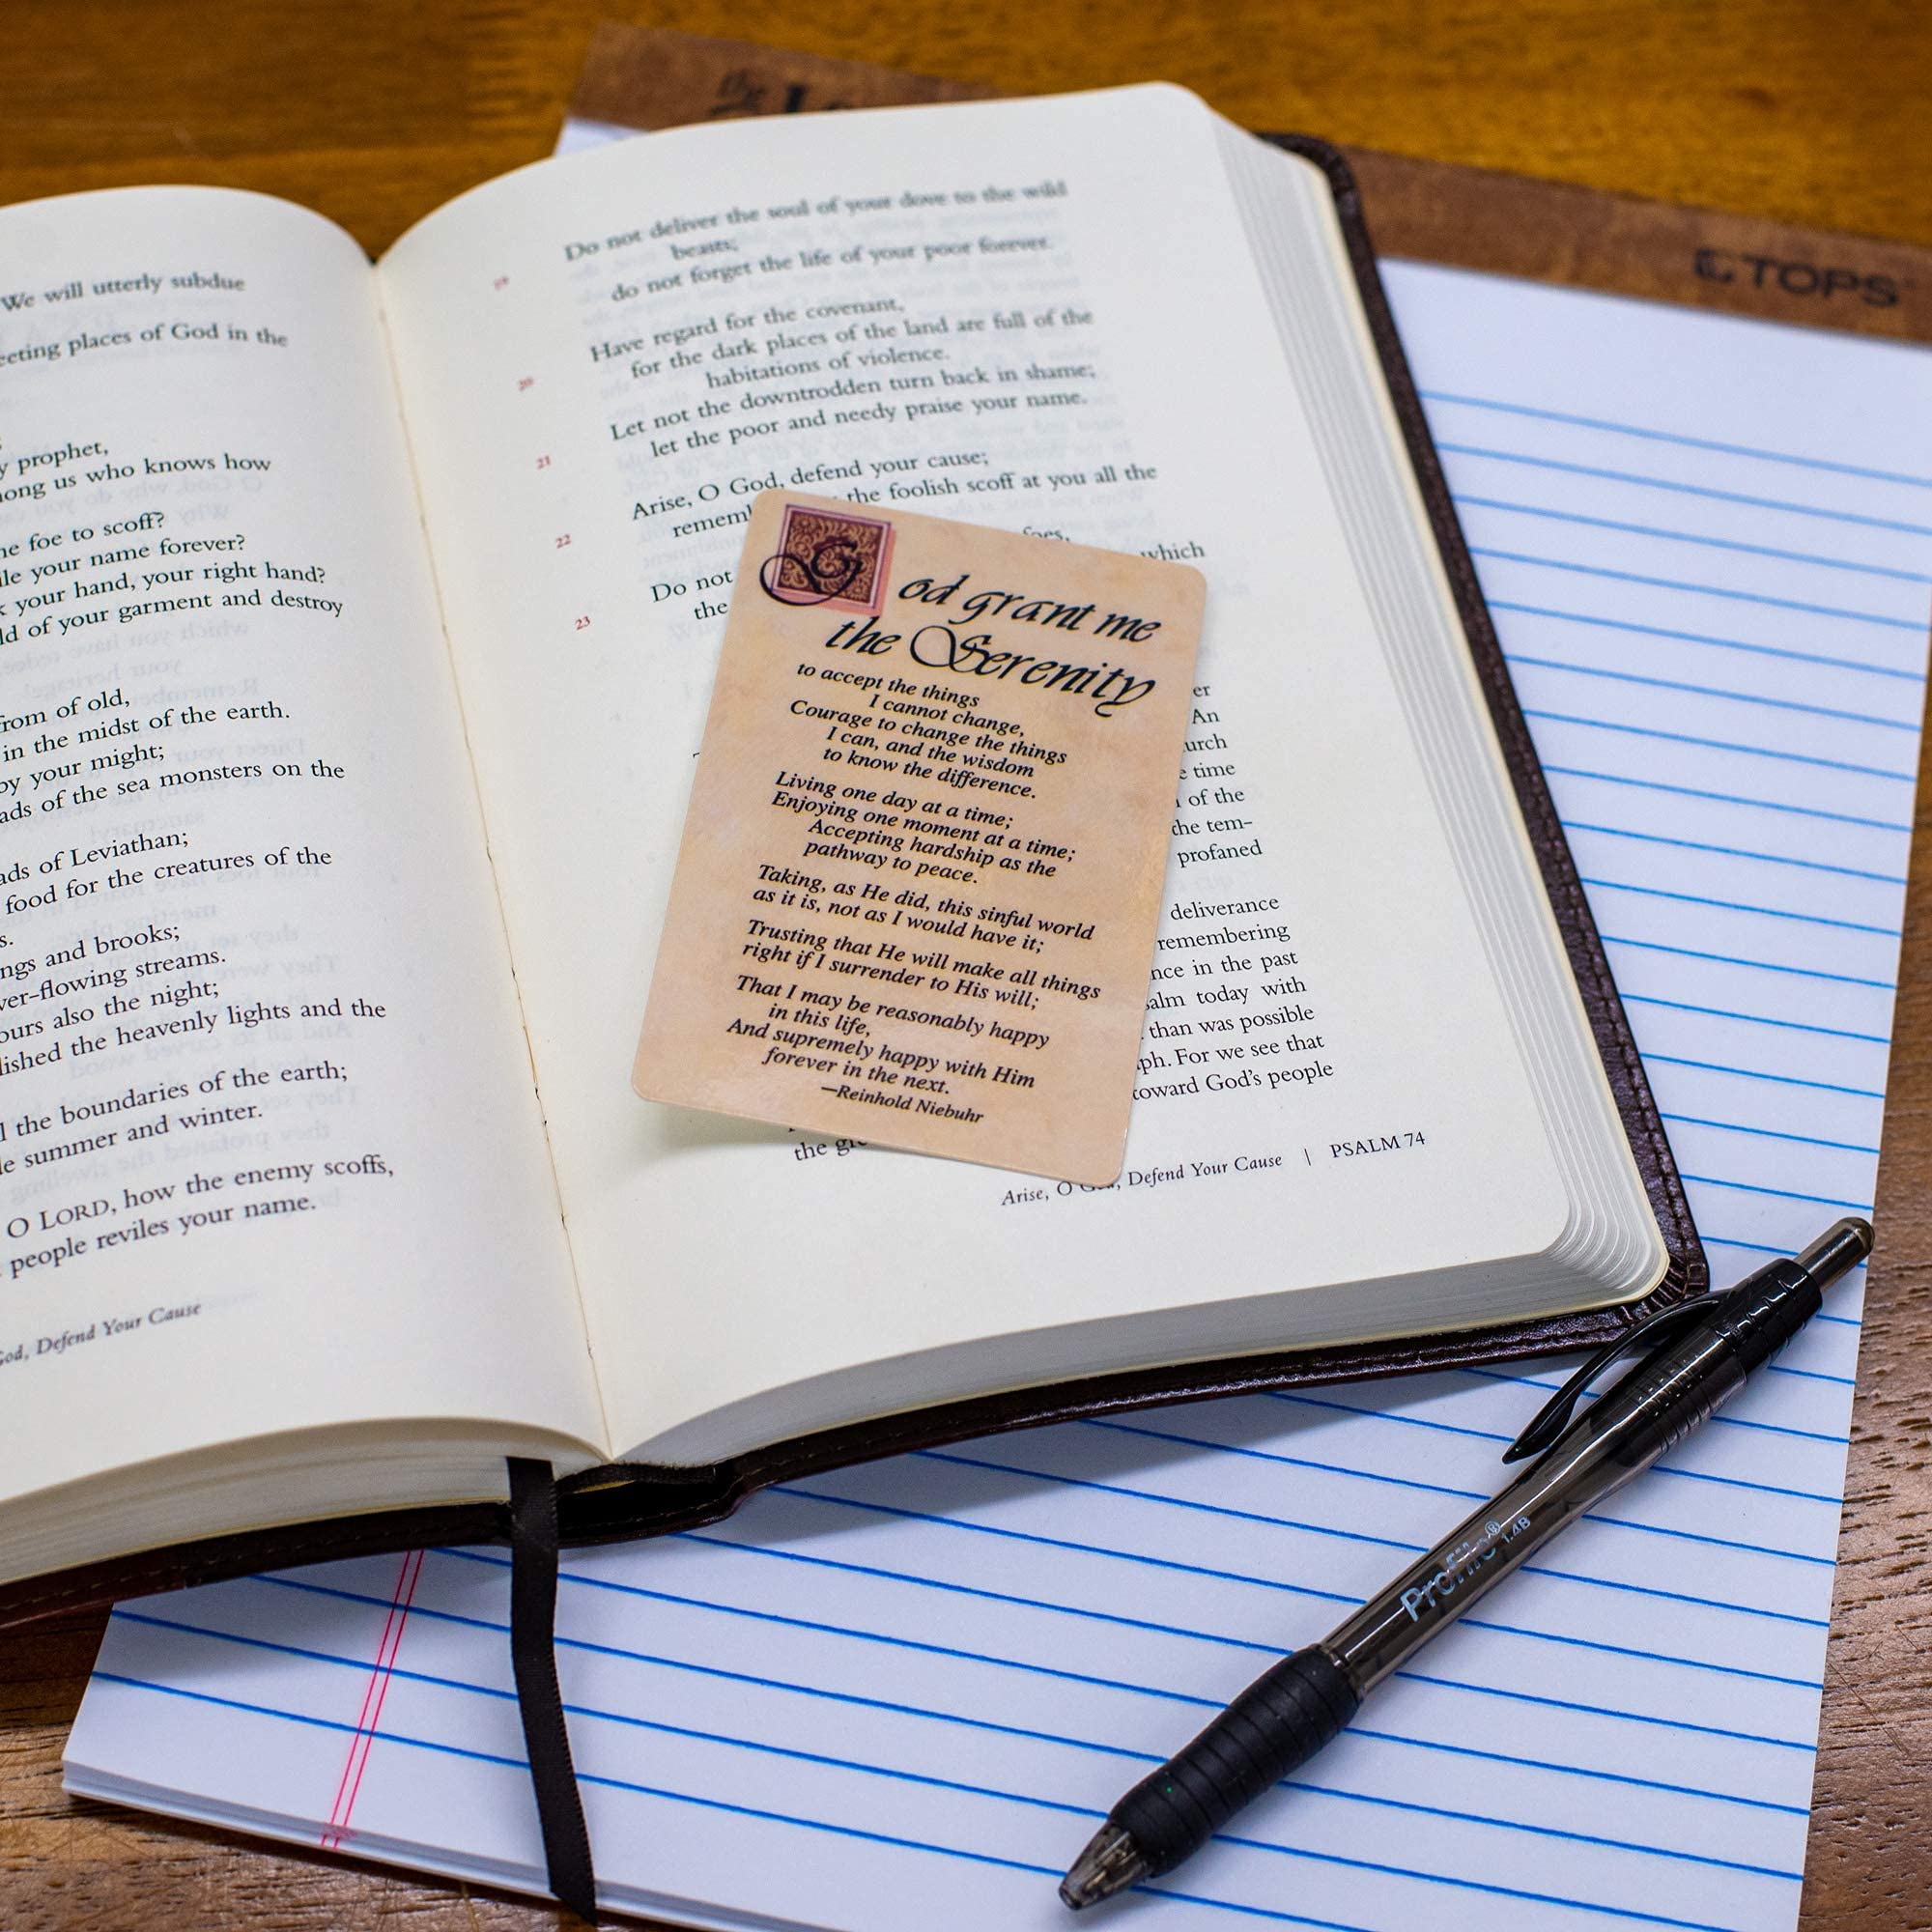 We will utterly subdue
places of God in the
prophet,
us who knows how
foe to scoff?
your name forever?
your hand, your right hand?
of your garment and destroy
from of old,
in the midst of the earth.
by your might;
of the sea monsters on the
of Leviathan;
food for the creatures of the
and brooks;
streams.
also the night;
the heavenly lights and the
the boundaries of the earth;
summer and winter.
O LORD, how the enemy scoffs,
people reviles your name.
God, Defend Your Cause
Do not deliver the soul of your dove to the wild
beasts;
19 do not forget the life of your poor forever.
Have regard for the covenant,
20 for the dark places of the land are full of the
habitations of violence.
Let not the downtrodden turn back in shame;
21 let the poor and needy praise your name.
Arise, O God, defend your cause;
22 the foolish scoff at you all the
foes,
Do not which
23 the
er
An
urch
time
of the
the tem-
profaned
deliverance
remembering
in the past
today with
than was possible
For we see that
toward God's people
the
Arise, O God, Defend Your Cause | PSALM 74
God grant me
the Serenity
to accept the things
I cannot change,
Courage to change the things
I can, and the wisdom
to know the difference.
Living one day at a time;
Enjoying one moment at a time;
Accepting hardship as the
pathway to peace.
Taking, as He did, this sinful world
as it is, not as I would have it;
Trusting that He will make all things
right if I surrender to His will;
That I may be reasonably happy
in this life,
And supremely happy with Him
forever in the next.
—Reinhold Niebuhr
the
TOPS
Profile® 1.4B